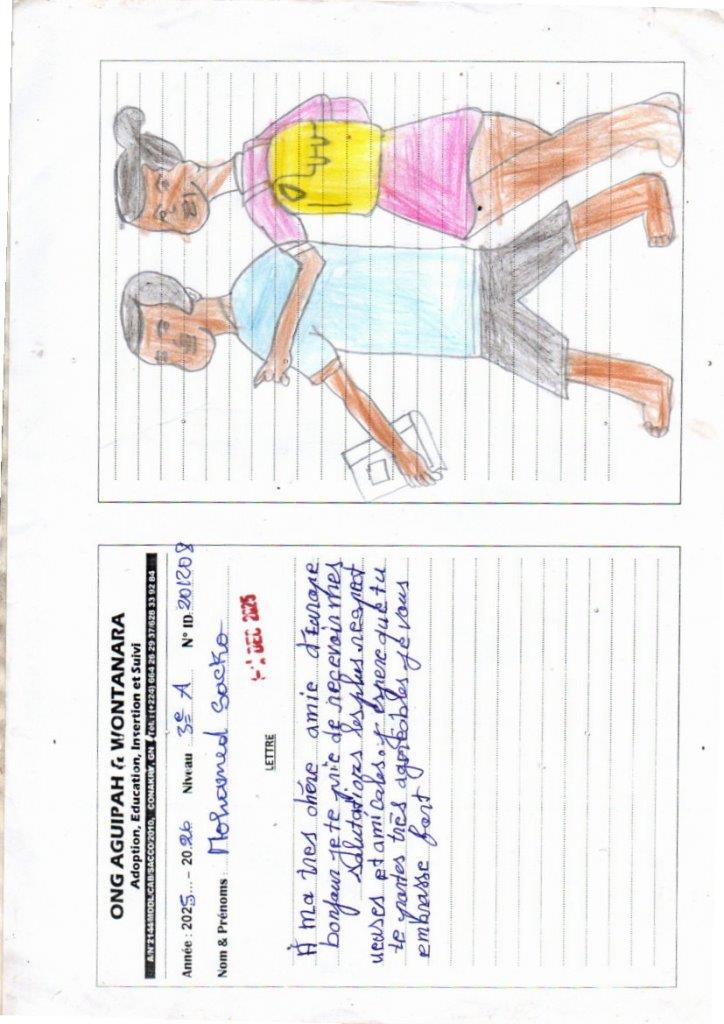 ONG AGUIPAH & WONTANARA
Adoption, Education, Insertion et Suivi
Année : 2025... – 2026 Niveau : 3e A N° ID: 201208
Nom & Prénoms : Mohamed Sacko
DEC 2025
LETTRE
À ma tres chère amie d'Europe
bonjour je te prie de recevoir mes
salutations les plus respect
ueuses et amicales. j'espere que tu
te portes très agréables je vous
embrasse fort